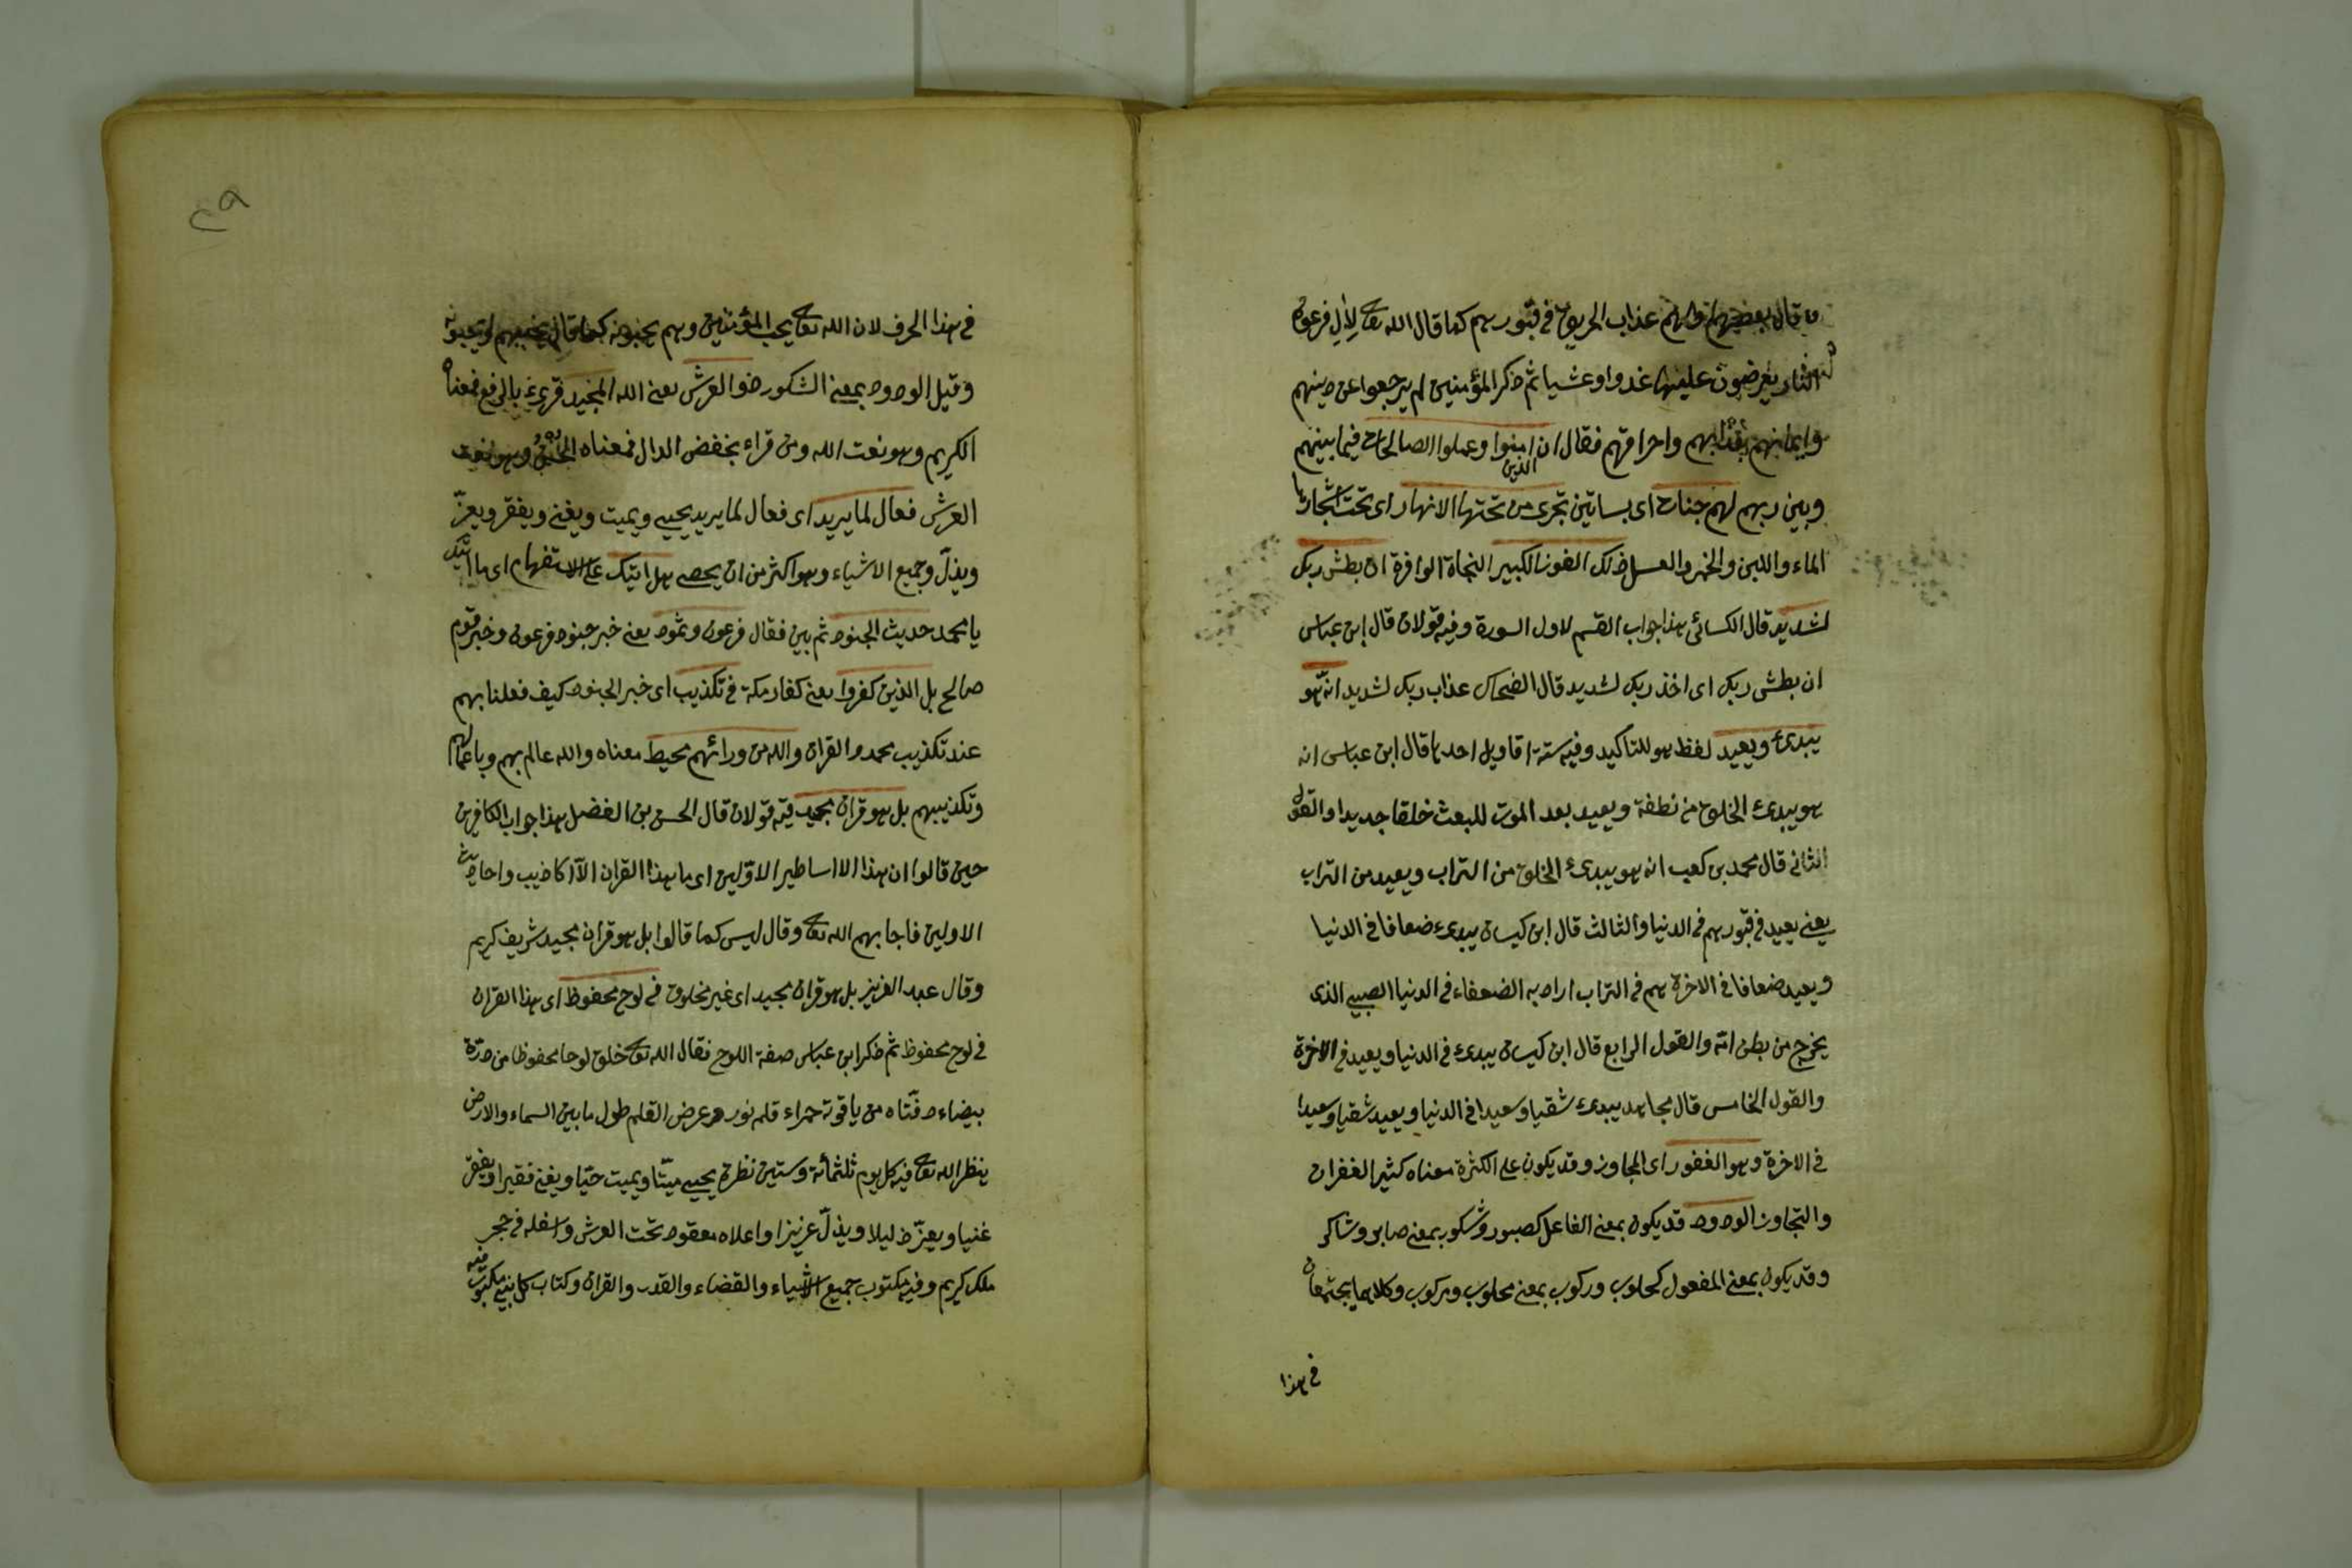 قال بعضهم ولهم عذاب الحريق في قبورهم كما قال الله تعالى لآل فرعون
النار يعرضون عليها غدوا وعشيا ثم ذكر المؤمنين لم يرجعوا عن دينهم
وايمانهم بعذابهم واحراقهم فقال ان الذين امنوا وعملوا الصالحات فيما بينهم
وبين ربهم لهم جنات اى بساتين تجرى من تحتها الانهار اى تحت اشجارها
الماء واللبن والخمر والعسل ذلك الفوز الكبير النجاة الوافرة ان بطش ربك
لشديد قال الكسائى هذا جواب القسم لاول السورة وفيه قولان قال ابن عباس
ان بطش ربك اى اخذ ربك لشديد قال الضحاك عذاب ربك لشديد انه هو
يبدئ ويعيد لفظ هو للتاكيد وفيه ستة اقاويل احدها قال ابن عباس انه
هو يبدئ الخلق من نطفة ويعيد بعد الموت للبعث خلقا جديدا والقول
الثانى قال محمد بن كعب انه هو يبدئ الخلق من التراب ويعيد من التراب
يعنى يعيد فى قبورهم فى الدنيا والثالث قال ابن كيسان يبدئ ضعافا فى الدنيا
ويعيد ضعافا فى الاخرة هم فى التراب اراد به الضعفاء فى الدنيا الصبى الذى
يخرج من بطن امه والقول الرابع قال ابن كيسان يبدئ فى الدنيا ويعيد فى الاخرة
والقول الخامس قال مجاهد يبدئ شقيا وسعيدا فى الدنيا ويعيد شقيا وسعيدا
فى الاخرة وهو الغفور اى المجاوز وقد يكون على الكثرة معناه كثير الغفران
والتجاوز الودود قد يكون بمعنى الفاعل كصبور وشكور بمعنى صابر وشاكر
وقد يكون بمعنى المفعول كحلوب وركوب بمعنى محلوب ومركوب وكلاهما يجتمعان
فى هذا
فى هذا الحرف لان الله تعالى يحب المؤمنين وهم يحبونه كما قال يحبهم ويحبونه
وقيل الودود بمعنى الشكور ذو العرش يعنى الله المجيد قرئ بالرفع فمعناه
الكريم وهو نعت الله ومن قراء بخفض الدال فمعناه وهو نعت
العرش فعال لما يريد اى فعال لما يريد يحيى ويميت ويغنى ويفقر ويعز
ويذل وجميع الاشياء وهو اكثر من ان يحصى هل اتيك على الاستفهام اى ما اتيك
يا محمد حديث الجنود ثم بين فقال فرعون وثمود يعنى خبر جنود فرعون وخبر قوم
صالح بل الذين كفروا يعنى كفار مكة فى تكذيب اى خبر الجنود كيف فعلنا بهم
عند تكذيب محمد والقران والله من ورائهم محيط معناه والله عالم بهم وباعمالهم
وتكذيبهم بل هو قران مجيد فيه قولان قال الحسن بن الفضل هذا جواب الكافرين
حين قالوا ان هذا الا اساطير الاولين اى ما هذا القران الا اكاذيب واحاديث
الاولين فاجابهم الله تعالى وقال ليس كما قالوا بل هو قران مجيد شريف كريم
وقال عبد العزيز بل هو قران مجيد اى غير مخلوق فى لوح محفوظ اى هذا القران
فى لوح محفوظ ثم ذكر ابن عباس صفة اللوح فقال الله تعالى خلق لوحا محفوظا من درة
بيضاء دفتاه من ياقوتة حمراء قلمه نور وعرض القلم طول ما بين السماء والارض
ينظر الله تعالى فيه كل يوم ثلثمائة وستين نظرة يحيى ميتا ويميت حيا ويغنى فقيرا ويفقر
غنيا ويعز ذليلا ويذل عزيزا واعلاه معقود تحت العرش واسفله فى حجر
ملك كريم وفيه مكتوب جميع الاشياء والقضاء والقدر والقران وكتاب كل نبى مكتوب فيه